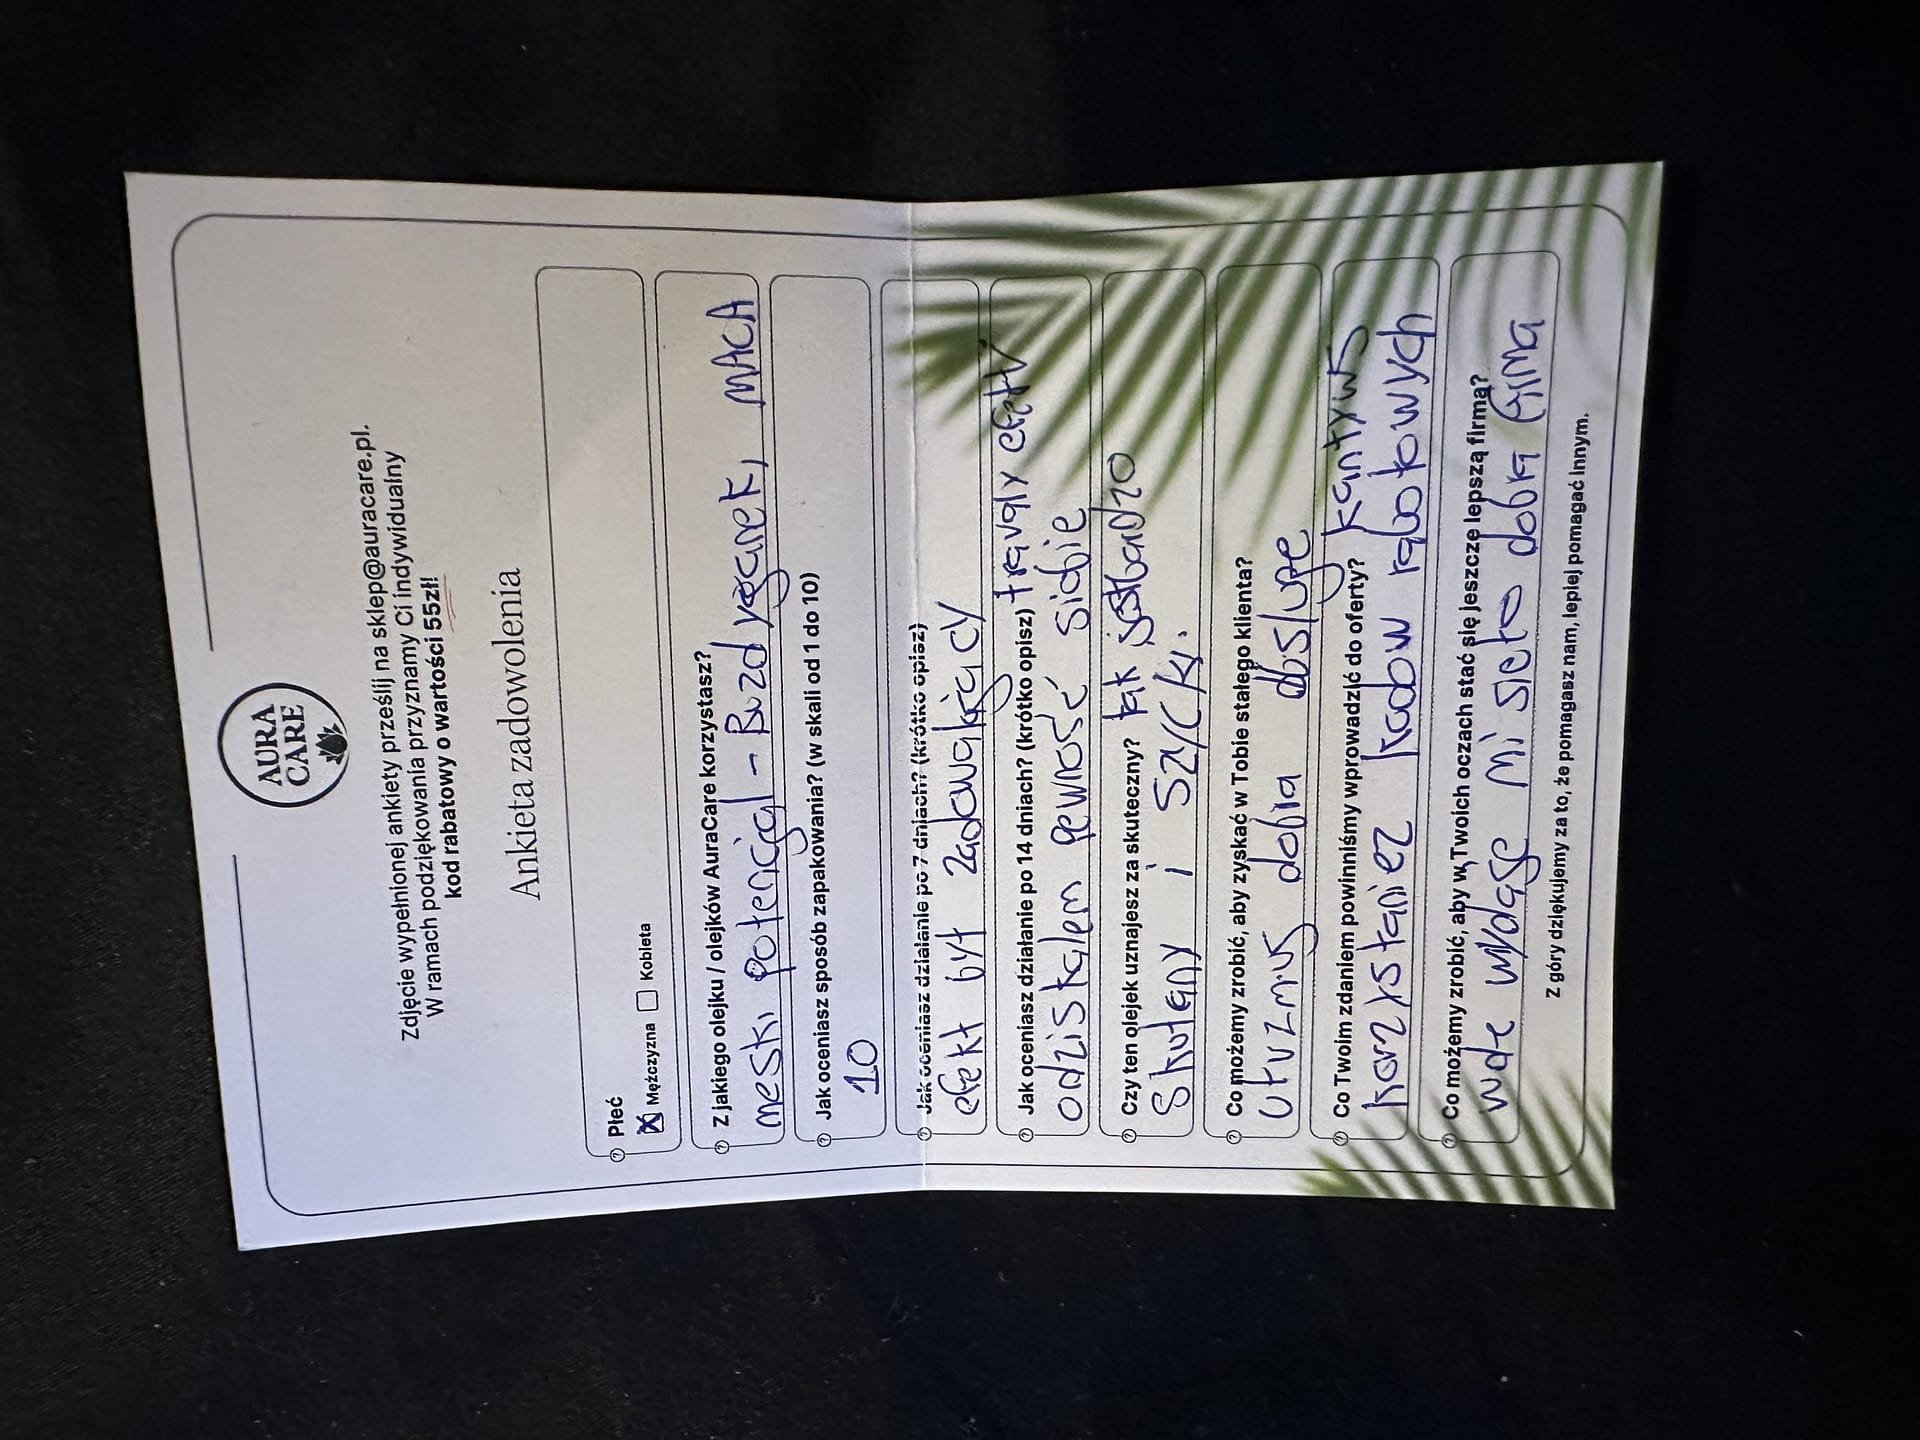 AURA
CARE
Zdjęcie wypełnionej ankiety prześlij na sklep@auracare.pl.
W ramach podziękowania przyznamy Ci indywidualny
kod rabatowy o wartości 55zł!
Ankieta zadowolenia
Płeć
Mężczyzna Kobieta
Z jakiego olejku / olejków AuraCare korzystasz?
meski potencjal - Buzdyganek, MACA
Jak oceniasz sposób zapakowania? (w skali od 1 do 10)
10
Jak oceniasz działanie po 7 dniach? (krótko opisz)
efekt był zadowalający
Jak oceniasz działanie po 14 dniach? (krótko opisz) trwaly efekt
odziskalem pewność siebie
Czy ten olejek uznajesz za skuteczny? tak jest bardzo
Skuteny i szycki.
Co możemy zrobić, aby zyskać w Tobie stałego klienta?
utrzmuj dobra obsluge
Co Twoim zdaniem powinniśmy wprowadzić do oferty?
korzystaniez kodow rabatowych
Co możemy zrobić, aby w Twoich oczach stać się jeszcze lepszą firmą?
wydaje mi sieto dobra firma
Z góry dziękujemy za to, że pomagasz nam, lepiej pomagać innym.